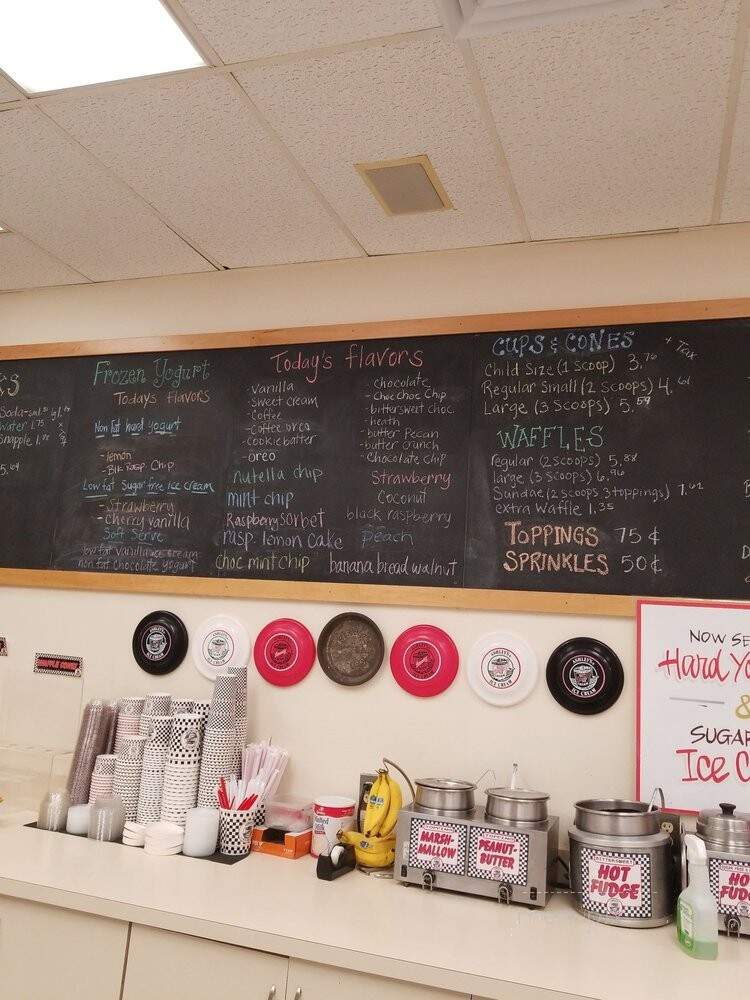 KS
Water 1.75
Snapple 1.
5.64
Frozen Yogurt
Todays Flavors
Non fat hard yogurt
- lemon
- Blk Rasp Chip
Low fat Sugar free ice cream
- Strawberry
- Cherry vanilla
Soft Serve
low fat vanilla ice cream
non fat chocolate yogurt
Today's flavors
- vanilla
- Sweet cream
- Coffee
- Coffee oreo
- Cookie batter
- oreo
nutella chip
mint chip
Raspberry sorbet
rasp. lemon cake
choc mint chip
- chocolate
- Choc Choc Chip
- bittersweet choc.
- heath
- butter Pecan
- butter crunch
- Chocolate Chip
Strawberry
Coconut
black raspberry
Peach
banana bread walnut
CUPS & CONES
+ Tax
Child Size (1 scoop) 3.76
Regular Small (2 Scoops) 4.61
Large (3 Scoops) 5.59
WAFFLES
regular (2 scoops) 5.88
large (3 scoops) 6.96
Sundae (2 scoops 3 toppings) 7.62
extra Waffle 1.35
TOPPINGS 75¢
SPRINKLES 50¢
NOW SE
Hard Yo
&
SUGAR
Ice C
ASHLEY'S
ICE CREAM
MARSH-
MALLOW
PEANUT-
BUTTER
BITTERSWEET
HOT
FUDGE
HO
FUD